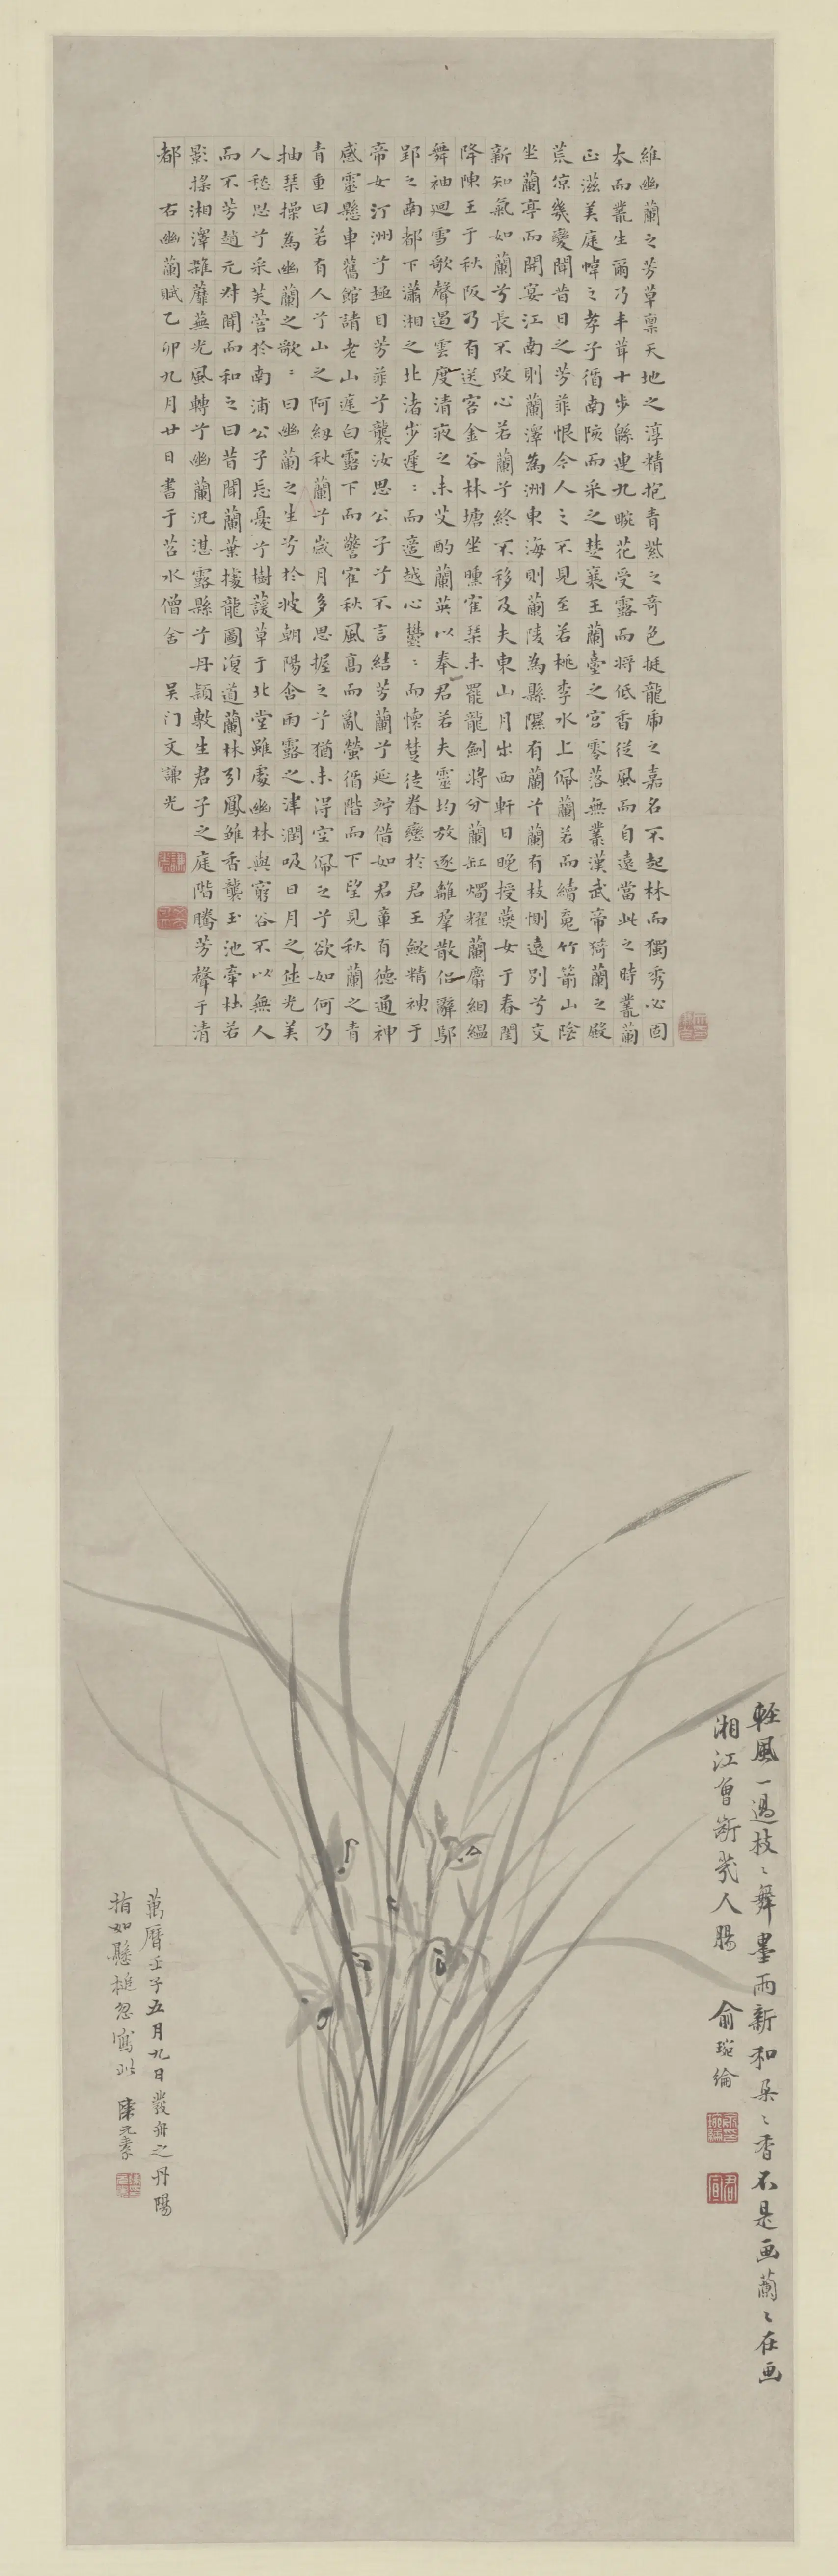 維幽蘭之芳草稟天地之淳精抱青紫之奇色挺龍虎之嘉名不起林而獨秀必固
本而叢生爾乃丰茸十步緜連九畹花受露而將低香從風而自遠當此之時叢蘭
正滋美庭幃之孝子循南陔而采之楚襄王蘭臺之宮零落無叢漢武帝猗蘭之殿
荒涼幾變聞昔日之芳菲恨今人之不見至若桃李水上佩蘭若而續魂竹箭山陰
坐蘭亭而開宴江南則蘭澤為洲東海則蘭陵為縣隰有蘭兮蘭有枝惻遠別兮交
新知氣如蘭兮長不改心若蘭兮終不移及夫東山月出西軒日晚授蕟女于春閨
降陳王于秋阪乃有送客金谷林塘坐曛隺琴未罷龍劍將分蘭缸燭耀蘭麝絪縕
舞袖迴雪歌聲遏雲度清夜之未艾酌蘭英以奉君若夫靈均放逐離羣散侶辭鄢
郢之南都下瀟湘之北渚步遲〻而適越心鬱〻而懷楚徒眷戀於君王斂精神于
帝女汀洲兮極目芳菲兮襲汝思公子兮不言結芳蘭兮延竚借如君章有德通神
感靈懸車舊館請老山庭白露下而警隺秋風高而亂螢循階而下望見秋蘭之青
青重曰若有人兮山之阿紉秋蘭兮歲月多思握之兮猶未得空佩之兮欲如何乃
抽琴操為幽蘭之歌〻曰幽蘭之生兮於彼朝陽含雨露之津潤吸日月之佳光美
人愁思兮采芙蓉於南浦公子忘憂兮樹萲草于北堂雖處幽林與窮谷不以無人
而不芳趙元叔聞而和之曰昔聞蘭葉據龍圖復道蘭林引鳳雛香襲玉池牽杜若
影搖湘澤雜蘼蕪光風轉兮幽蘭汎湛露縣兮丹穎敷生君子之庭階騰芳聲于清
都　右幽蘭賦乙卯九月廿日書于苕水僧舍　吴门文謙光
輕風一過枝〻舞墨雨新和朵〻香不是画蘭〻在画
湘江曾斷幾人腸　俞琬綸
萬曆壬子五月九日發舟之丹陽
指如懸槌忽寫此　陳元素